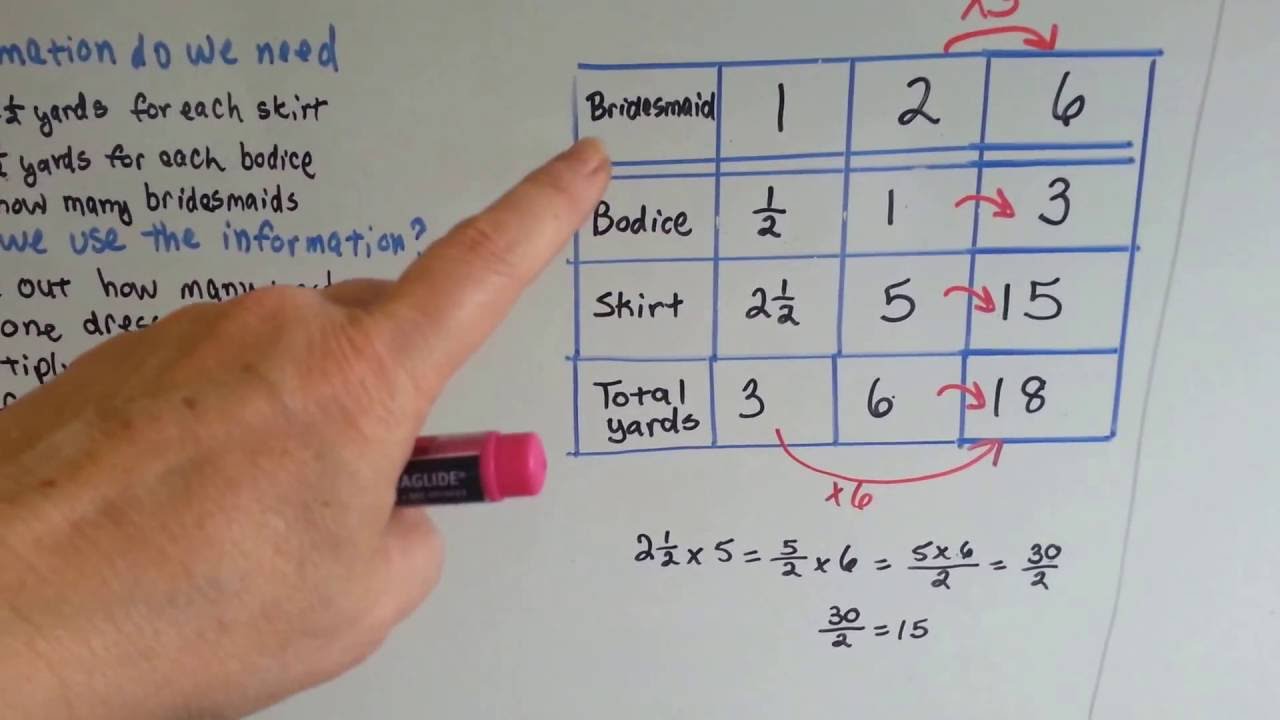 mation do we need
yards for each skirt
yards for each bodice
how many bridesmaids
we use the information?
out how many
one dress
tiply
x3
Bridesmaid 1 2 6
Bodice 1/2 1 3
Skirt 2 1/2 5 15
Total yards 3 6 18
x6
2 1/2 x 5 = 5/2 x 6 = 5x6/2 = 30/2
30/2 = 15
AGLIDE